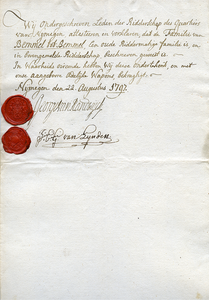 Wij Ondergeschreven Leden der Ridderschap des Quartiers
van Nijmegen attesteeren en verklaren, dat de Familie van
Bemmel tot Bemmel Een oude Riddermatige familie is, en
in Overoude Ridderschap, Beschreven geweest is
In Waarheids oirconde hebben Wij deese onderteekent, en met
onse aangebore Adelijke Wapens bekragtigt
Nijmegen den 22 Augustus 1797
van Eynden